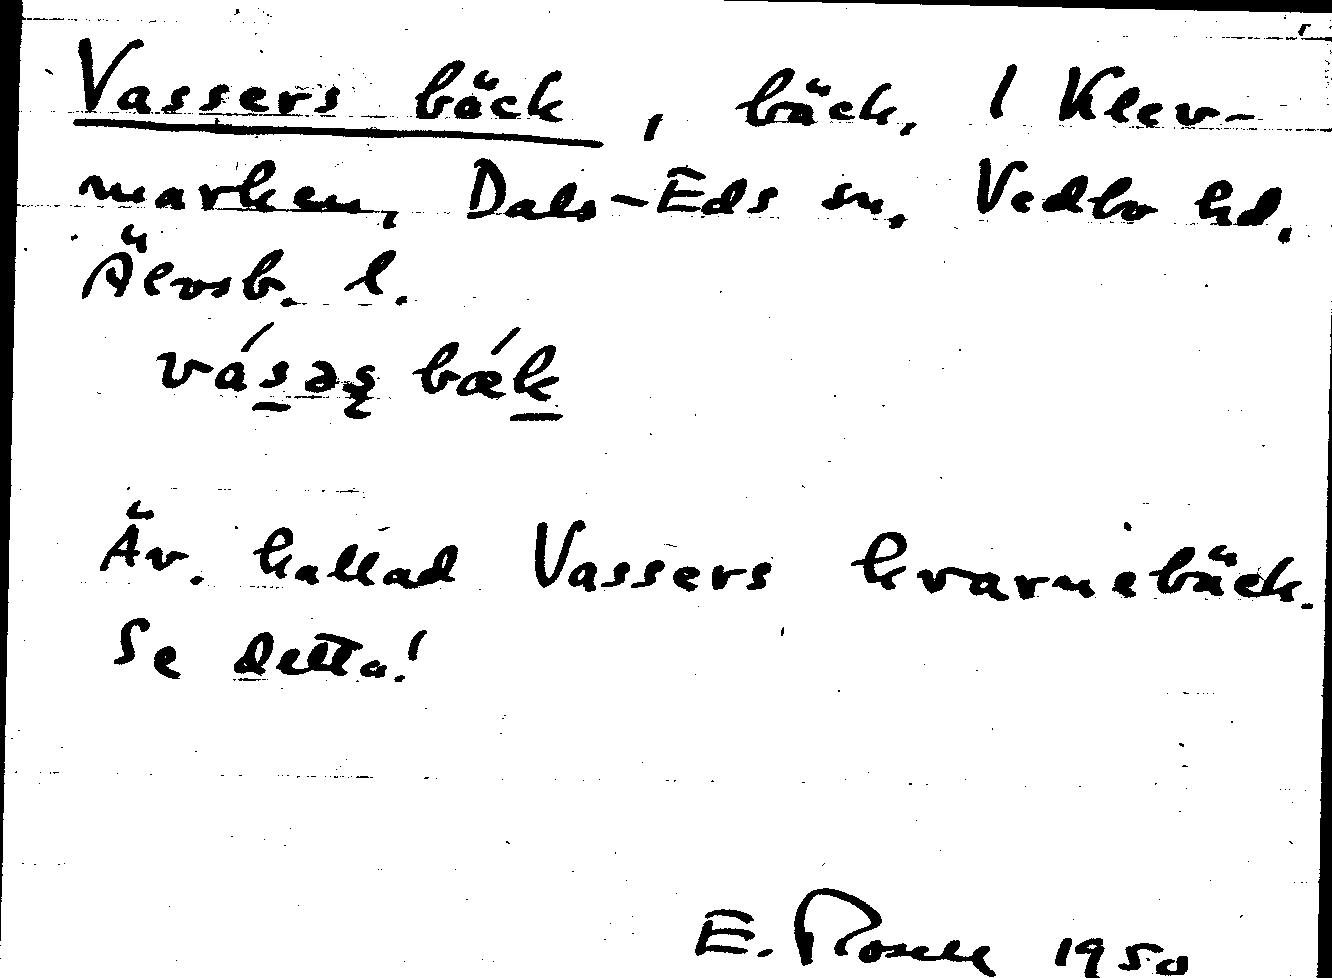 Vassers bäck, bäck, 1 Klev-
marken, Dals-Eds sn, Vedbo hd,
Älvsb. l.
vás̠əs̨ bǽk̠
Äv. kallad Vassers kvarnebäck.
Se detta!
E. Rosell 1950